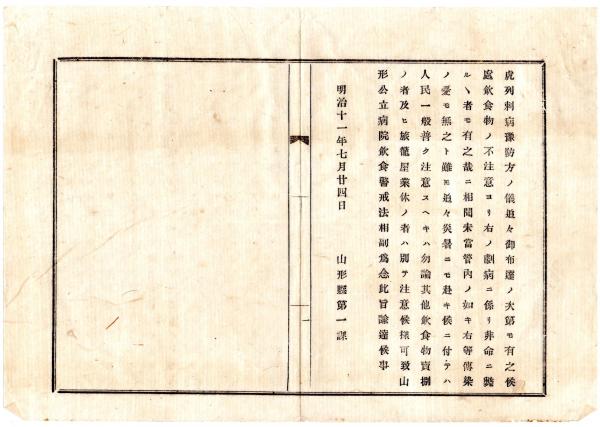 虎列剌病豫防方ノ儀追々御布達ノ次第モ有之候
處飮食物ノ不注意ヨリ右ノ劇病ニ係リ非命ニ斃
ルヽ者モ有之哉ニ相聞未當管內ノ如キ右等傳染
ノ憂モ無之ト雖モ追々炎暑ニモ赴キ候ニ付テハ
人民一般普ク注意スヘキハ勿論其他飮食物賣捌
ノ者及ヒ旅籠屋業体ノ者ハ別テ注意候樣可致山
形公立病院飮食警戒法相副爲念此旨諭達候事
明治十一年七月廿四日
山形縣第一課